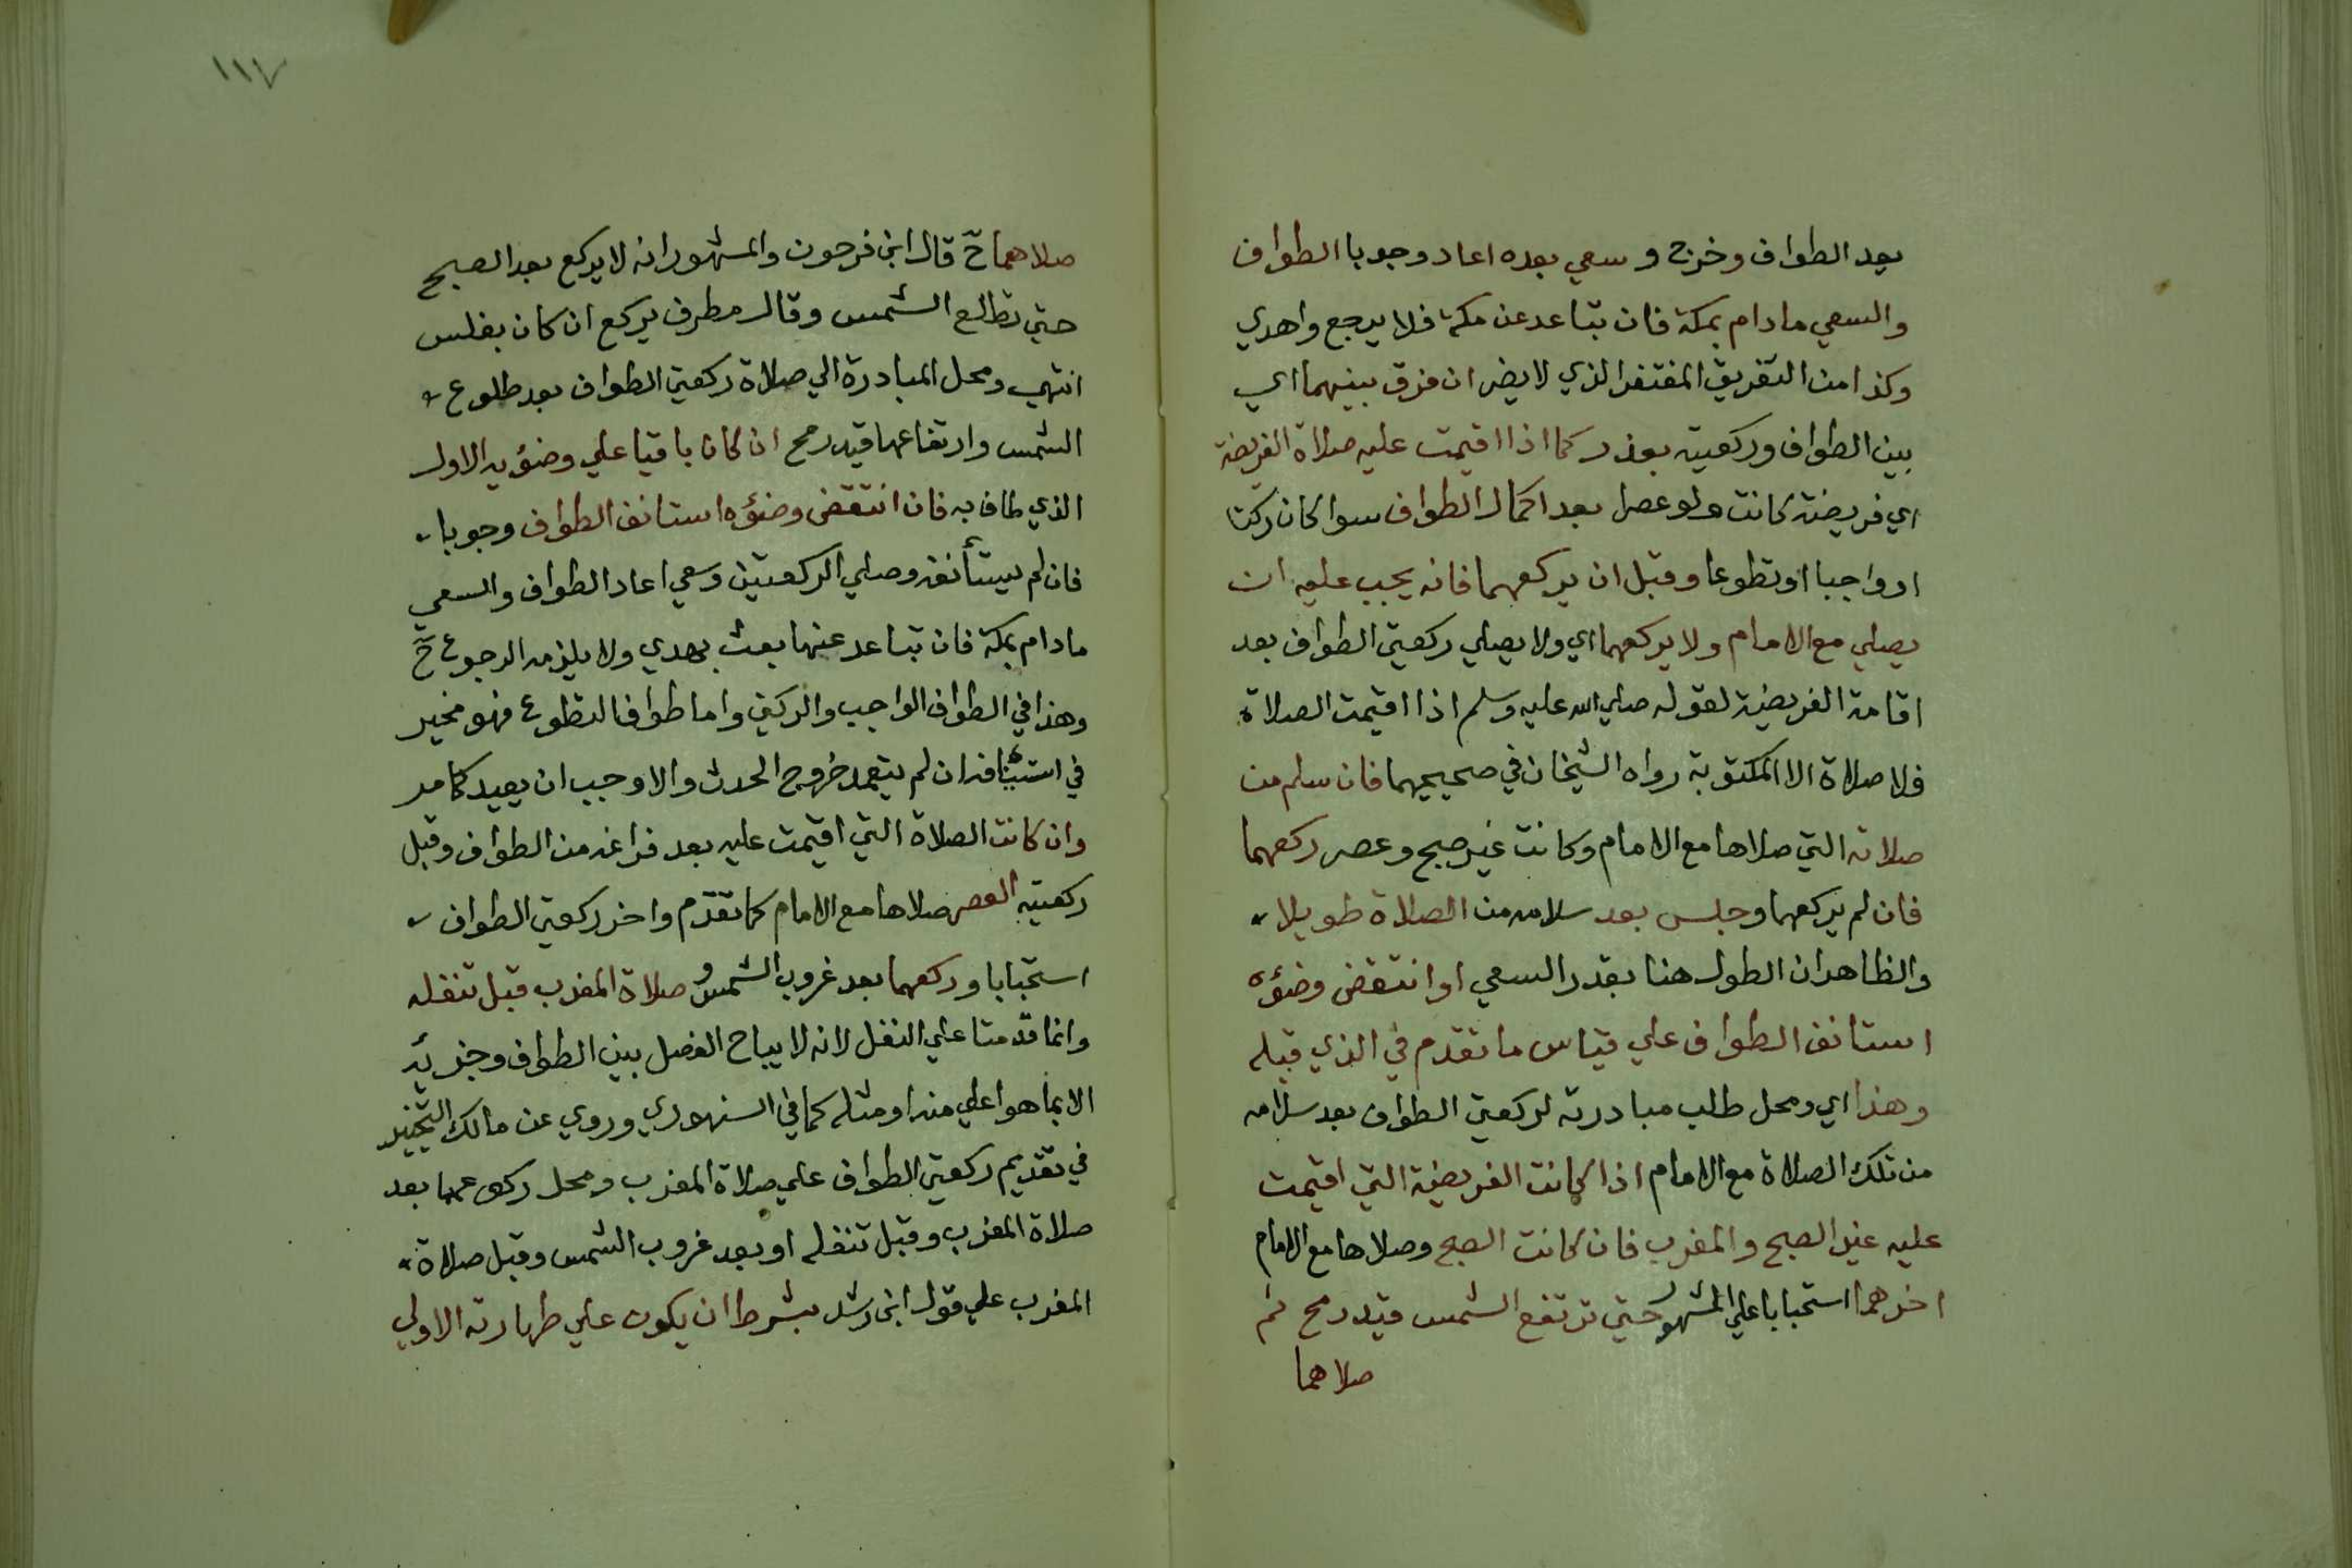 بعد الطواف وخرج وسعي بعده اعاد وجوبا الطواف
والسعي مادام بمكة فان تباعد عن مكة فلا يرجع واهدي
وكذا من التفريق المغتفر الذي لا يضر ان فرق بينهما اي
بين الطواف وركعتيه بعذر كما اذا اقيمت عليه صلاة الفريضة
اي فريضة كانت ولو عصرا بعد اكمال الطواف سوا كان ركنا
او واجبا او تطوعا وقبل ان يركعهما فانه يجب عليه ان
يصلي مع الامام ولا يركعهما اي ولا يصلي ركعتي الطواف بعد
اقامة الفريضة لقوله صلي الله عليه وسلم اذا اقيمت الصلاة
فلا صلاة الا المكتوبة رواه الشيخان في صحيحيهما فان سلم من
صلاته التي صلاها مع الامام وكانت غير صبح وعصر ركعهما
فان لم يركعهما وجلس بعد سلامه من الصلاة طويلا
والظاهر ان الطول هنا بقدر السعي او انتقض وضؤه
استانف الطواف علي قياس ما تقدم في الذي قبله
وهذا اي ومحل طلب مبادرته لركعتي الطواف بعد سلامه
من تلك الصلاة مع الامام اذا كانت الفريضة التي اقيمت
عليه غير الصبح والمغرب فان كانت الصبح وصلاها مع الامام
اخرهما استحبابا علي المشهور حتي ترتفع الشمس قيد رمح ثم
صلاهما
١١٧
صلاهما ح قال ابن فرحون والمشهور انه لا يركع بعد الصبح
حتي تطالع الشمس وقال مطرف يركع ان كان بغلس
انتهي ومحل المبادرة الي صلاة ركعتي الطواف بعد طلوع
الشمس وارتفاعها قيد رمح ان كان باقيا علي وضؤيه الاول
الذي طاف به فان انتقض وضؤه استانف الطواف وجوبا
فان لم يستأنفه وصلي الركعتين وسعي اعاد الطواف والسعي
مادام بمكة فان تباعد عنها بعث بهدي ولا يلزمه الرجوع ح
وهذا في الطواف الواجب والركني واما طواف التطوع فهو مخير
في استئنافه ان لم يتعمد خروج الحدث والا وجب ان يعيد كما مر
وان كانت الصلاة التي اقيمت عليه بعد فراغه من الطواف وقبل
ركعتيه العصر صلاها مع الامام كما تقدم واخر ركعتي الطواف
استحبابا وركعهما بعد غروب الشمس و صلاة المغرب قبل تنفله
وانما قدمتا علي النفل لانه لا يباح الفصل بين الطواف وجزئه
الا بما هو اعلي منه او مثله كما في السنهوري وروي عن مالك التخيير
في تقديم ركعتي الطواف علي صلاة المغرب ومحل ركوعهما بعد
صلاة المغرب وقبل تنفله او بعد غروب الشمس وقبل صلاة
المغرب علي قول ابن رشد بشرط ان يكون علي طهارته الاولي